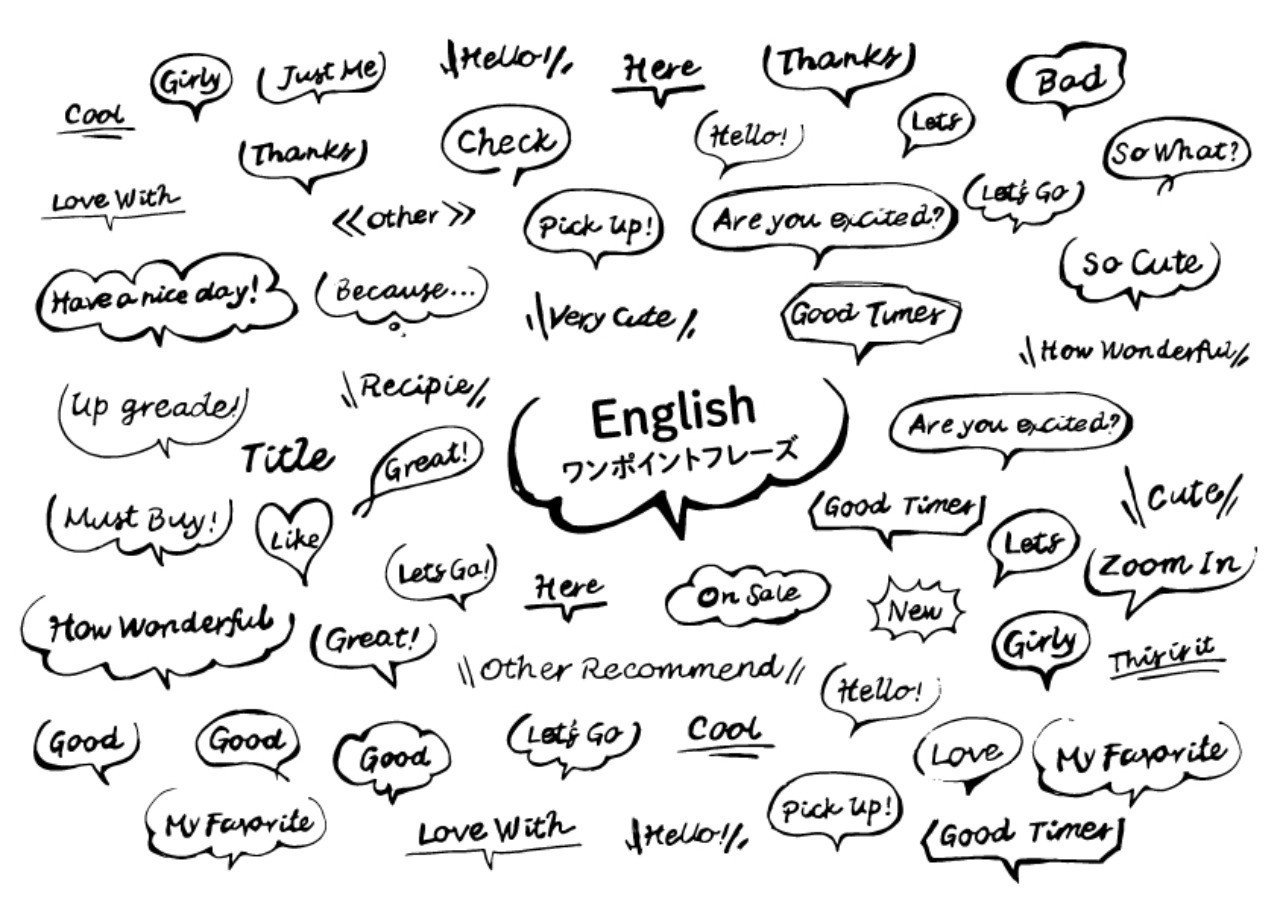 Girly
Just Me
Hello!
Here
Thanks
Bad
Cool
Thanks
Check
Hello!
Lets
So What?
Love With
other
Pick Up!
Are you excited?
Let's Go
So Cute
Have a nice day!
Because...
Very Cute
Good Times
How Wonderful
Up greade!
Recipie
English
ワンポイントフレーズ
Are you excited?
Title
Great!
Must Buy!
Like
Good Times
Cute
Lets
Lets Go!
Here
On Sale
New
Zoom In
How Wonderful
Great!
Other Recommend
Girly
This is it
Hello!
Good
Good
Good
Let's Go
Cool
Love
My Favorite
My Favorite
Love With
Hello!
Pick Up!
Good Times